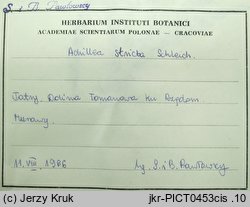 S. i B. Pawłowscy
HERBARIUM INSTITUTI BOTANICI
ACADEMIAE SCIENTIARUM POLONAE — CRACOVIAE
Achillea stricta Schleich.
Tatry. Dolina Tomanowa
Murawy.
11 VIII 1966 leg. S. i B. Pawłowscy
(c) Jerzy Kruk jkr-PICT0453cis .10